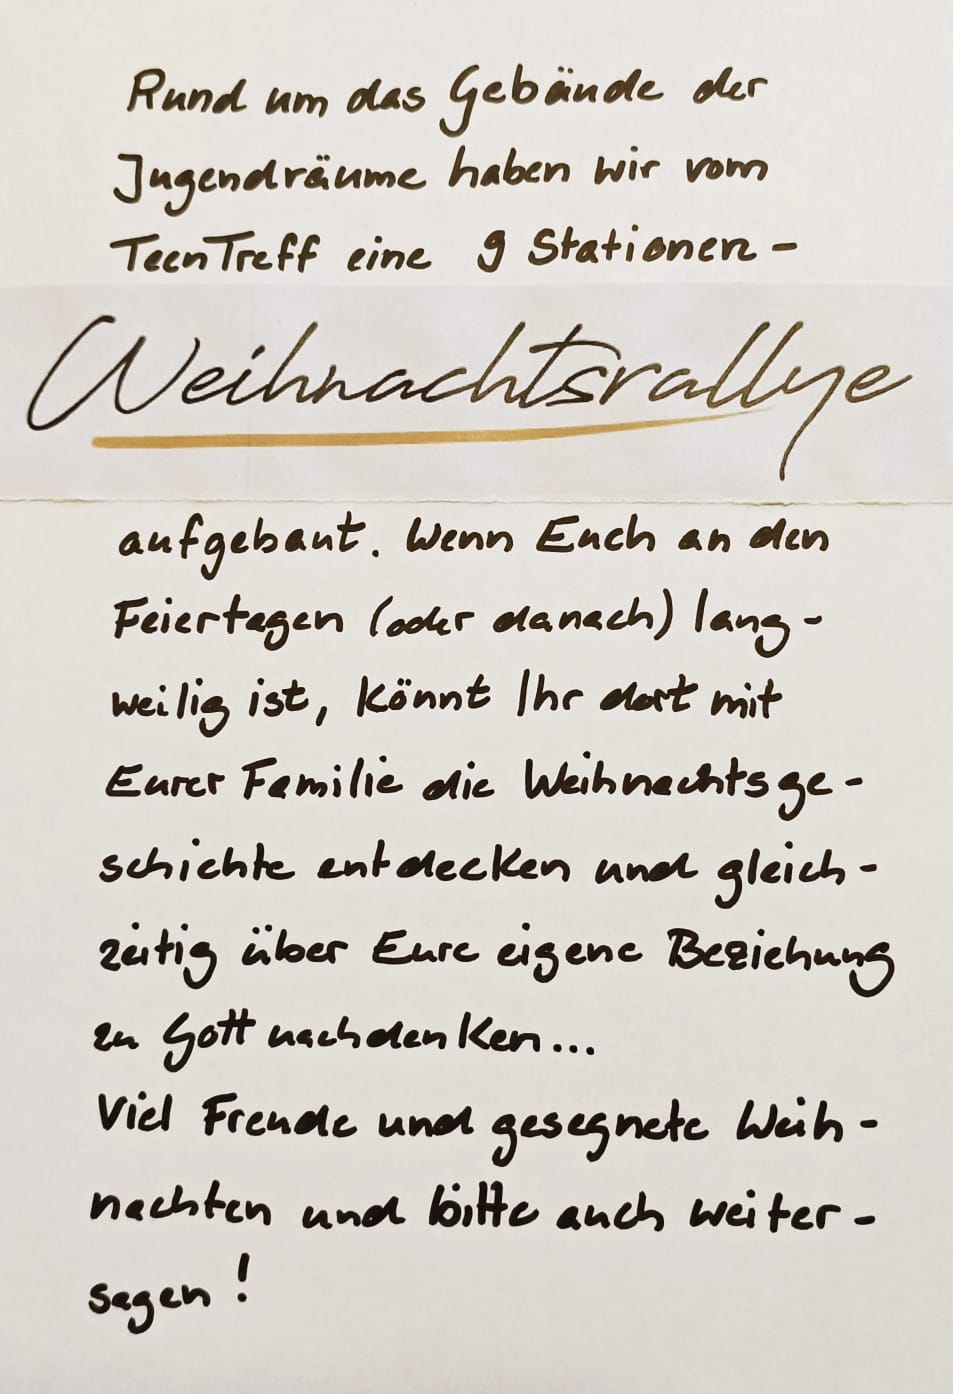 Rund um das Gebäude der
Jugendräume haben wir vom
TeenTreff eine 9 Stationen-
Weihnachtsrallye
aufgebaut. Wenn Euch an den
Feiertagen (oder danach) lang-
weilig ist, könnt Ihr dort mit
Eurer Familie die Weihnachtsge-
schichte entdecken und gleich-
zeitig über Eure eigene Beziehung
zu Gott nachdenken...
Viel Freude und gesegnete Weih-
nachten und bitte auch weiter-
sagen!